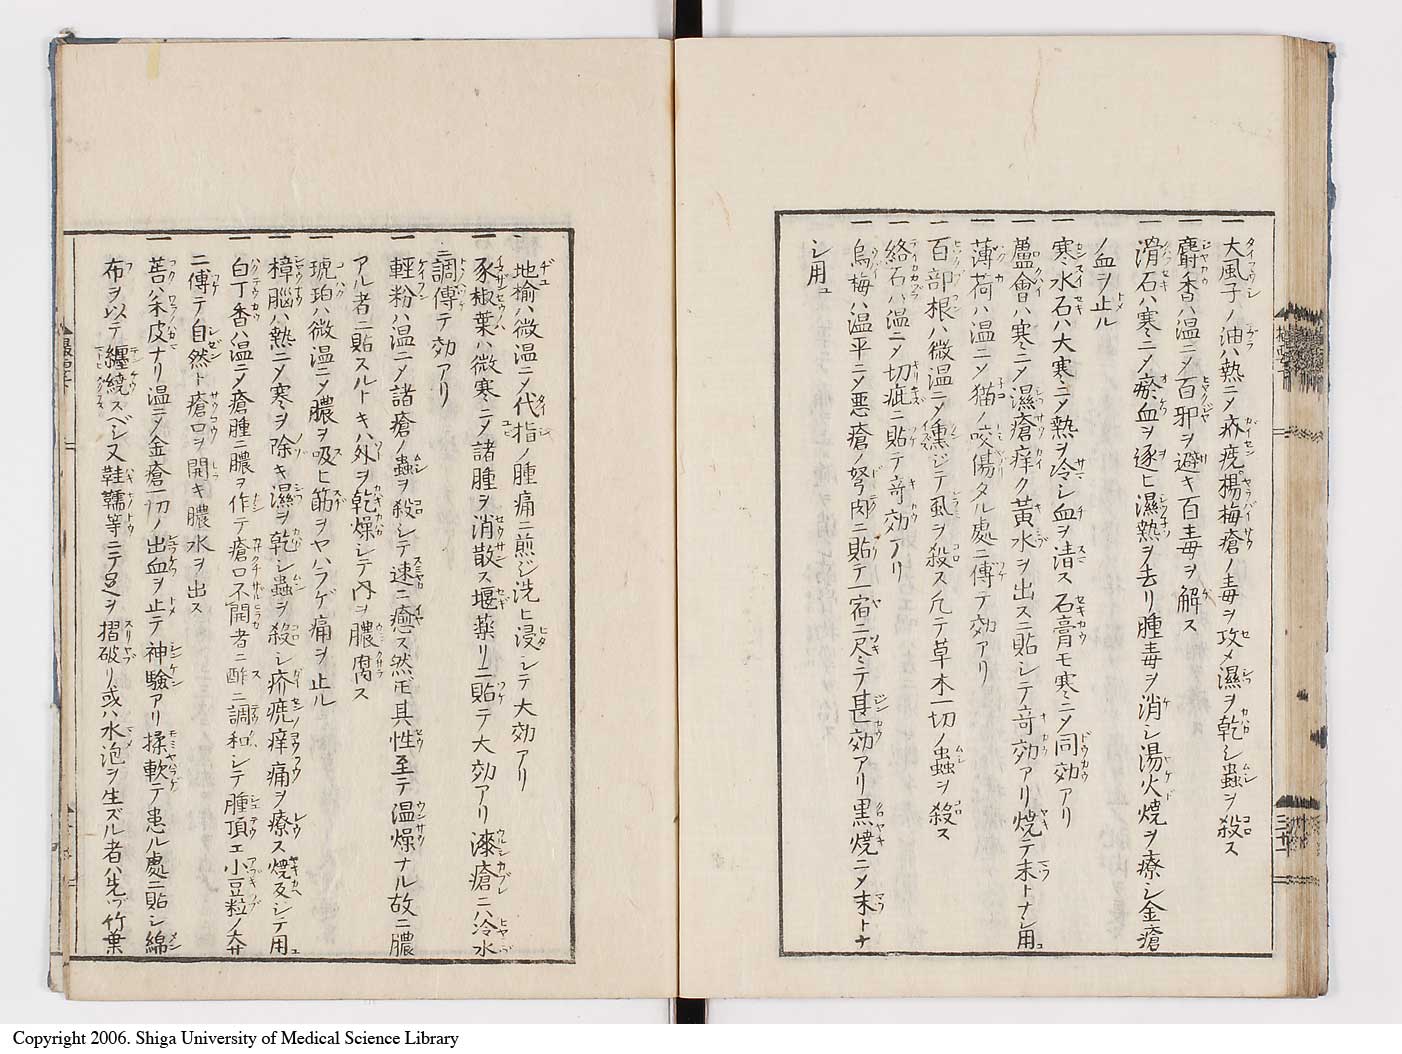 一 大風子ノ油ハ熱ニメ疥癩楊梅瘡ノ毒ヲ攻メ濕ヲ乾シ蟲ヲ殺ス
一 麝香ハ温ニメ百邪ヲ避キ百毒ヲ解ス
一 滑石ハ寒ニメ瘀血ヲ逐ヒ濕熱ヲ去リ腫毒ヲ消シ湯火燒ヲ療シ金瘡
血ヲ止ル
一 寒水石ハ大寒ニメ熱ヲ冷シ血ヲ清ス石膏モ寒ニメ同効アリ
一 蘆會ハ寒ニメ濕瘡痒ク黃水ヲ出スニ貼シテ奇効アリ燒テ末トナシ用
一 薄荷ハ温ニメ猫ノ咬傷タル處ニ傅テ効アリ
一 百部根ハ微温ニメ熏ジテ風ヲ殺ス凡テ草木一切ノ蟲ヲ殺ス
一 絡石ハ温ニメ切疵ニ貼テ奇効アリ
一 烏梅ハ温平ニメ惡瘡ノ弩肉ニ貼テ一宿ニ尽ミテ甚効アリ黒燒ニメ末トナ
シ用ユ
一 地榆ハ微温ニメ代指ノ腫痛ニ煎ジ洗ヒ浸シテ大効アリ
一 豕椒葉ハ微寒ニメ諸腫ヲ消散ス堰藥リニ貼テ大効アリ漆瘡ニハ冷水
ニ調傅テ効アリ
一 輕粉ハ温ニメ諸瘡ノ蟲ヲ殺シテ速ニ癒ス然圧其性至テ温燥ナル故ニ膿
アル者ニ貼スルトキハ外ヲ乾燥シテ内ヲ膿腐ス
一 琥珀ハ微温ニメ膿ヲ吸ヒ筋ヲヤハラゲ痛ヲ止ル
一 樟腦ハ熱ニメ寒ヲ除キ濕ヲ乾シ蟲ヲ殺シ疥癩痒痛ヲ療ス燒反シテ用ユ
一 白丁香ハ温ニメ瘡腫ニ膿ヲ作テ瘡口不開者ニ酢ニ調和シテ腫頂エ小豆粒ノ大サ
ニ傅テ自然ト瘡口ヲ開キ膿水ヲ出ス
一 苦ハ木皮ナリ温ニメ金瘡一切ノ出血ヲ止テ神驗アリ揉軟テ患ル處ニ貼シ綿
布ヲ以テ纏繞スベシ又鞋韈等ニテ足ヲ摺破リ或ハ水泡ヲ生ズル者ハ先ヅ竹葉
Copyright 2006. Shiga University of Medical Science Library